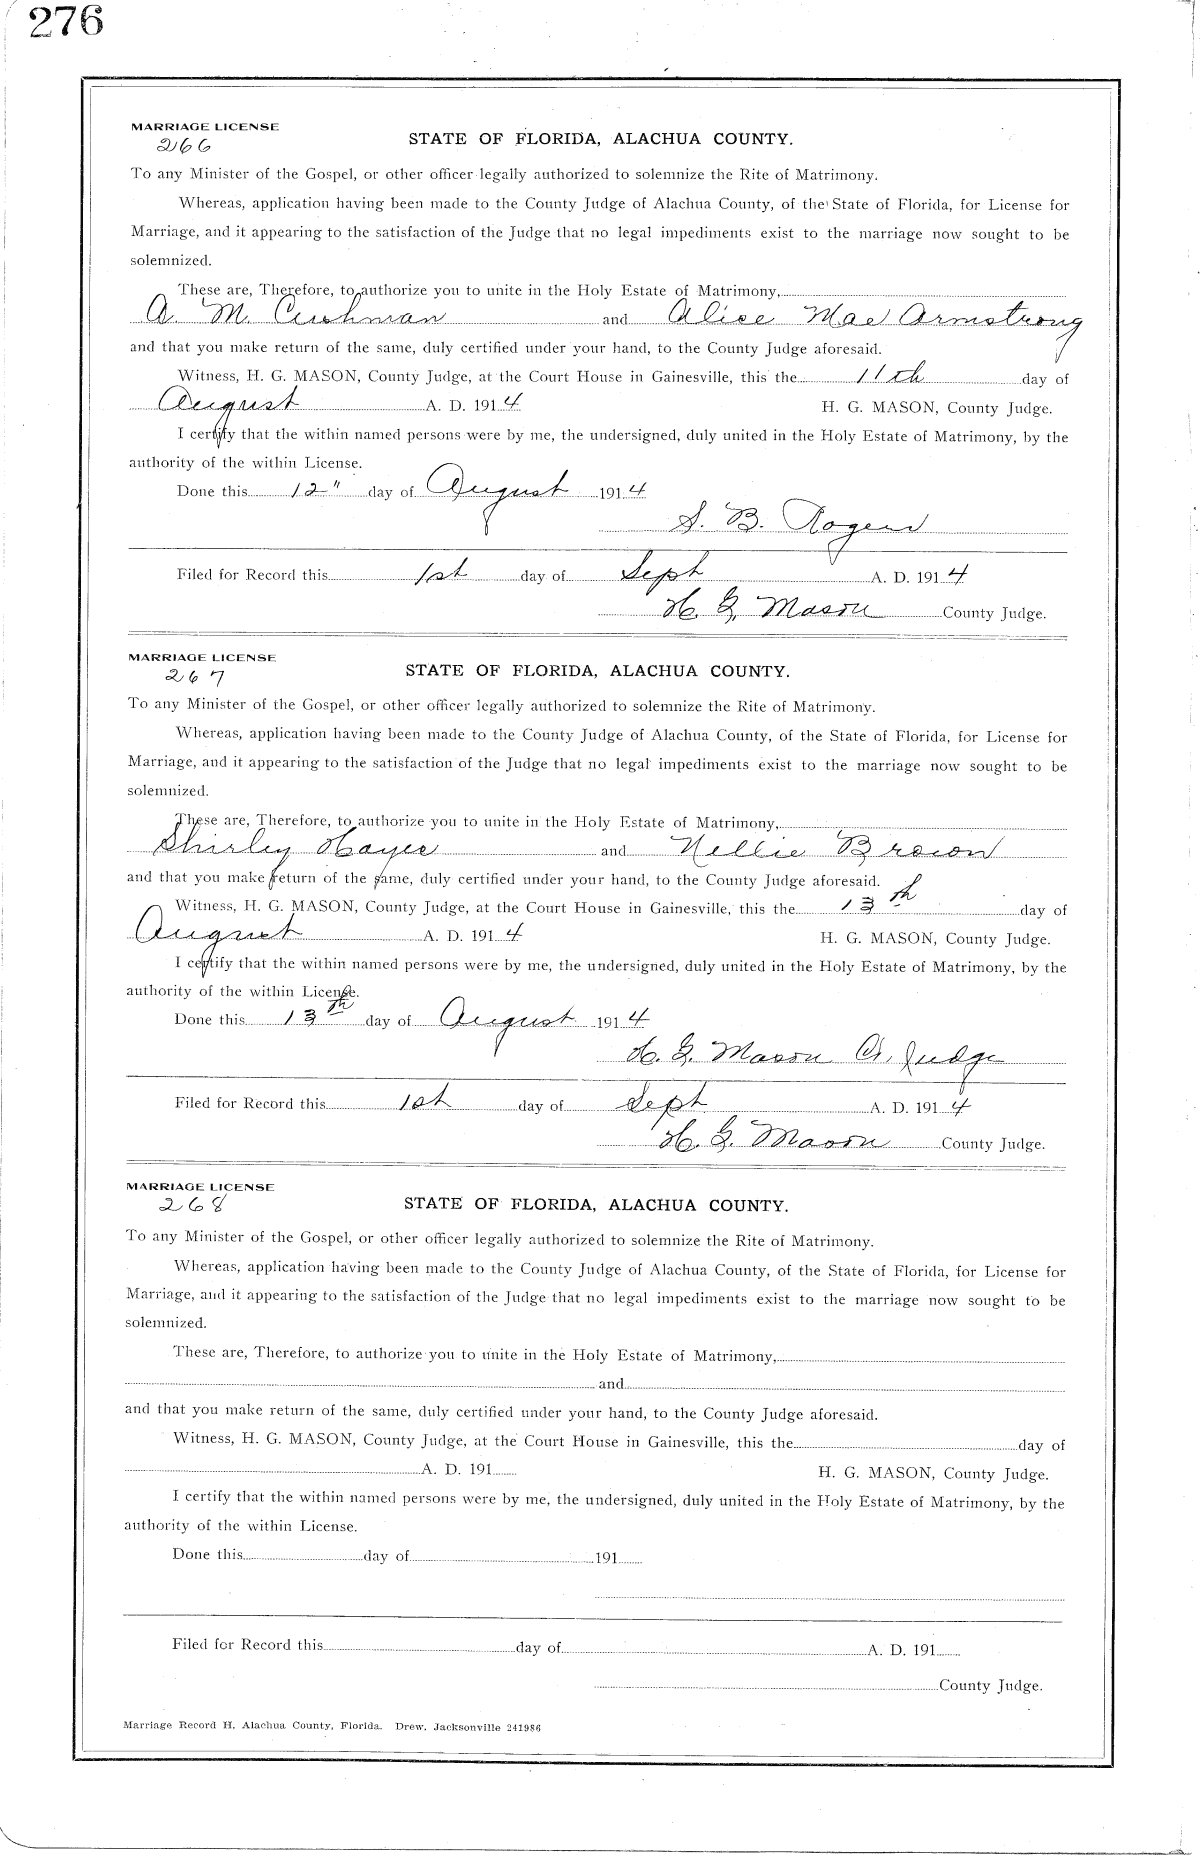 276
MARRIAGE LICENSE
266
STATE OF FLORIDA, ALACHUA COUNTY.
To any Minister of the Gospel, or other officer legally authorized to solemnize the Rite of Matrimony.
Whereas, application having been made to the County Judge of Alachua County, of the State of Florida, for License for
Marriage, and it appearing to the satisfaction of the Judge that no legal impediments exist to the marriage now sought to be
solemnized.
These are, Therefore, to authorize you to unite in the Holy Estate of Matrimony,
A. M. Cushman and Alice Mae Armstrong
and that you make return of the same, duly certified under your hand, to the County Judge aforesaid.
Witness, H. G. MASON, County Judge, at the Court House in Gainesville, this the 11th day of
August A. D. 1914 H. G. MASON, County Judge.
I certify that the within named persons were by me, the undersigned, duly united in the Holy Estate of Matrimony, by the
authority of the within License.
Done this 12" day of August 1914
S. B. Rogers
Filed for Record this 1st day of Sept A. D. 1914
H. G. Mason County Judge.
MARRIAGE LICENSE
267
STATE OF FLORIDA, ALACHUA COUNTY.
To any Minister of the Gospel, or other officer legally authorized to solemnize the Rite of Matrimony.
Whereas, application having been made to the County Judge of Alachua County, of the State of Florida, for License for
Marriage, and it appearing to the satisfaction of the Judge that no legal impediments exist to the marriage now sought to be
solemnized.
These are, Therefore, to authorize you to unite in the Holy Estate of Matrimony,
Shirley Hayes and Nellie Brown
and that you make return of the same, duly certified under your hand, to the County Judge aforesaid.
Witness, H. G. MASON, County Judge, at the Court House in Gainesville, this the 13th day of
August A. D. 1914 H. G. MASON, County Judge.
I certify that the within named persons were by me, the undersigned, duly united in the Holy Estate of Matrimony, by the
authority of the within License.
Done this 13th day of August 1914
H. G. Mason Co. Judge
Filed for Record this 1st day of Sept A. D. 1914
H. G. Mason County Judge.
MARRIAGE LICENSE
268
STATE OF FLORIDA, ALACHUA COUNTY.
To any Minister of the Gospel, or other officer legally authorized to solemnize the Rite of Matrimony.
Whereas, application having been made to the County Judge of Alachua County, of the State of Florida, for License for
Marriage, and it appearing to the satisfaction of the Judge that no legal impediments exist to the marriage now sought to be
solemnized.
These are, Therefore, to authorize you to unite in the Holy Estate of Matrimony,
and
and that you make return of the same, duly certified under your hand, to the County Judge aforesaid.
Witness, H. G. MASON, County Judge, at the Court House in Gainesville, this the day of
A. D. 191 H. G. MASON, County Judge.
I certify that the within named persons were by me, the undersigned, duly united in the Holy Estate of Matrimony, by the
authority of the within License.
Done this day of 191
Filed for Record this day of A. D. 191
County Judge.
Marriage Record H, Alachua County, Florida. Drew, Jacksonville 241986